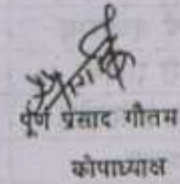 पूर्ण प्रसाद गौतम
कोषाध्यक्ष